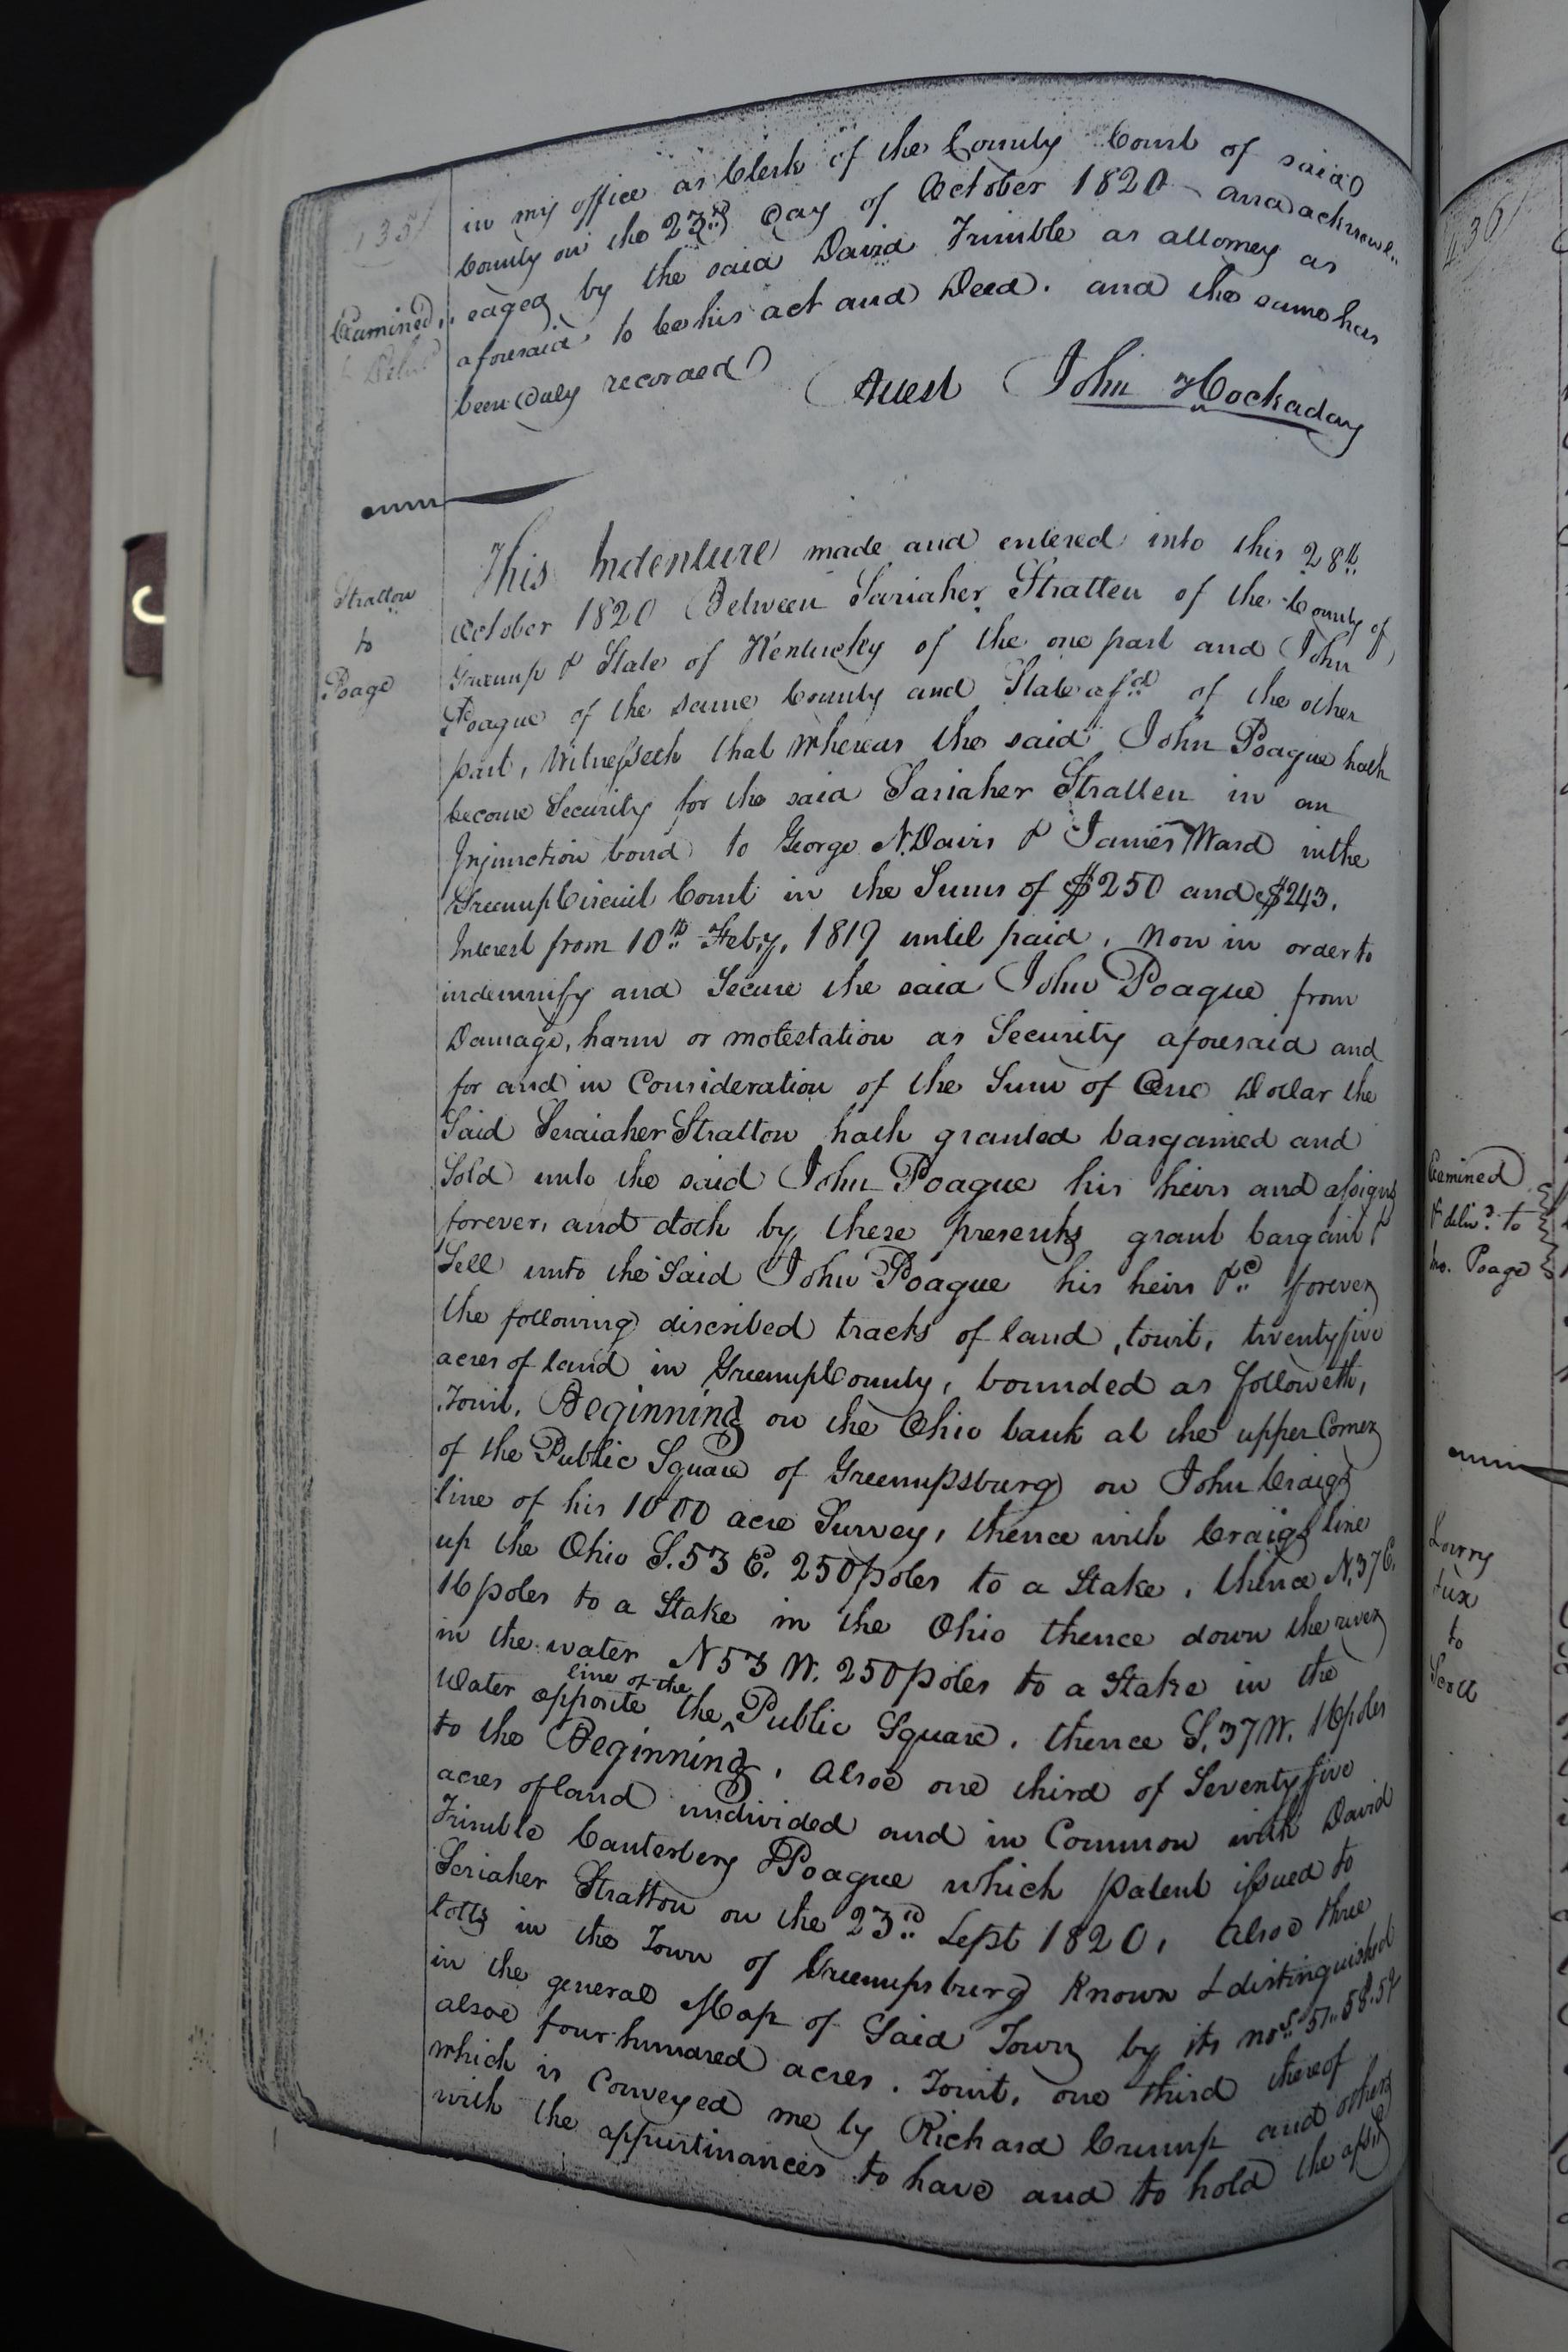 135
in my office as Clerk of the County Court of said
County on the 23rd day of October 1820 and acknowl..
Examined,
..edged by the said David Trimble as attorney as
aforesaid to be his act and Deed. and the same has
been duly recorded
Attest John Hockaday
Stratton
to
Poage
This Indenture made and entered into this 28th
October 1820 Between Sariaher Stratten of the County of
Greenup & State of Kentucky of the one part and John
Poague of the same County and State afd of the other
part, Witnesseth that Whereas the said John Poague hath
become Security for the said Sariaher Stratten in an
Injunction bond to George N. Davis & James Ward in the
Greenup Circuit Court in the Sums of $250 and $243.
Interest from 10th Feby. 1819 until paid. Now in order to
indemnify and Secure the said John Poague from
Damage, harm or motestation as Security aforesaid and
for and in Consideration of the Sum of One Dollar the
Said Seraiaher Stratton hath granted bargained and
Sold unto the said John Poague his heirs and assigns
forever, and doth by these presents grant bargain &
Sell unto the Said John Poague his heirs &c forever
the following discribed tracts of land, towit, twenty five
acres of land in Greenup County, bounded as followeth,
Towit, Beginning on the Ohio bank at the upper Corner
of the Public Square of Greenupsburg on John Craigs
line of his 1000 acre Survey, thence with Craigs line
up the Ohio S. 53 E. 250 poles to a Stake, thence N. 37 E.
16 poles to a Stake in the Ohio thence down the river
in the water N 53 W. 250 poles to a Stake in the
Water opposite the line of the Public Square. thence S. 37 W. 16 poles
to the Beginning. Alsoe one third of Seventy five
acres of land undivided and in Common with David
Trimble Canterbery & Poague which patent issued to
Seriaher Stratton on the 23rd Sept 1820, Alsoe three
lotts in the Town of Greenupsburg Known & distinguished
in the general Map of Said Town by its nos 57.. 58. 59
alsoe four hundred acres. Towit, one third thereof
which is Conveyed me by Richard Crump and others
with the appurtinances to have and to hold the afsd
436
Examined
& delivd to
Jno. Poage
Lowry
&ux
to
Scott